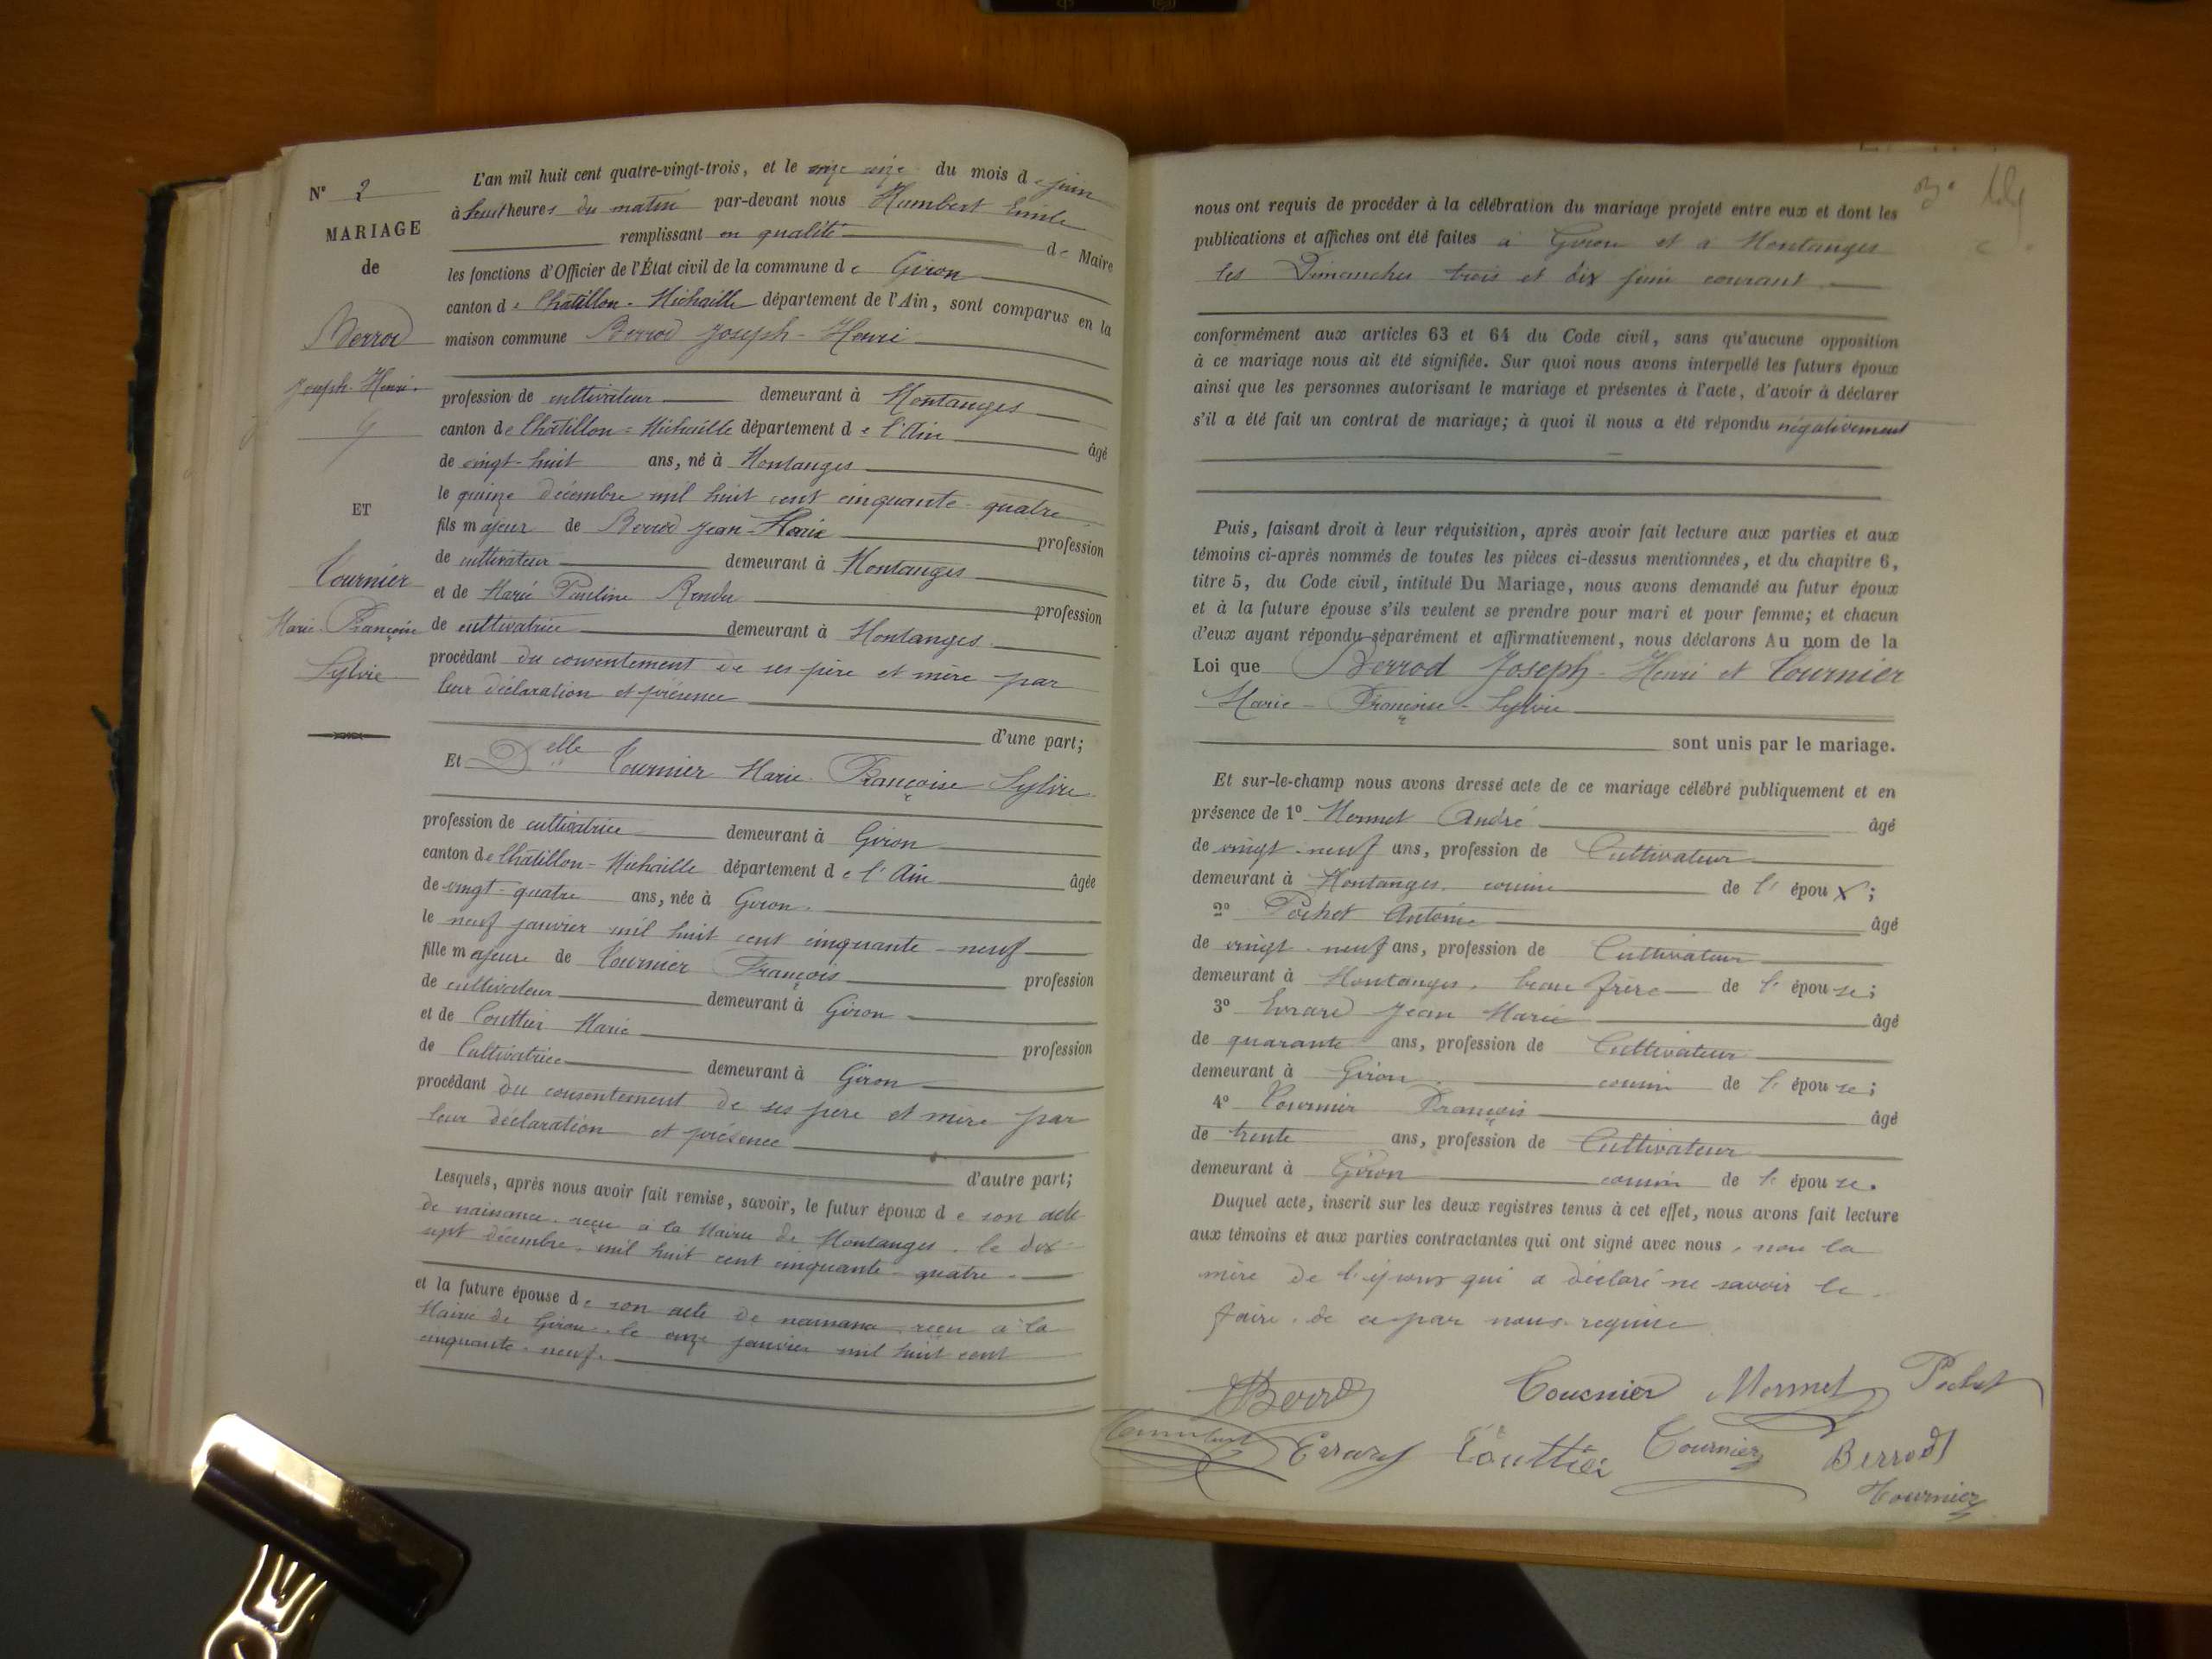 N° 2
MARIAGE
de
Berrod
Joseph-Henri
ET
Tournier
Marie Françoise
Sylvie
L'an mil huit cent quatre-vingt-trois, et le seize du mois de juin
à huit heures du matin par-devant nous Humbert Emile
remplissant en qualité de Maire
les fonctions d'Officier de l'État civil de la commune de Giron
canton de Châtillon-Michaille département de l'Ain, sont comparus en la
maison commune Berrod Joseph-Henri
profession de cultivateur demeurant à Montanges
canton de Châtillon-Michaille département de l'Ain âgé
de vingt-huit ans, né à Montanges
le quinze décembre mil huit cent cinquante-quatre
fils majeur de Berrod Jean-Marie profession
de cultivateur demeurant à Montanges
et de Marie Pauline Rendu profession
de cultivatrice demeurant à Montanges
procédant du consentement de ses père et mère par
leur déclaration et présence
d'une part;
Et Delle Tournier Marie Françoise Sylvie
profession de cultivatrice demeurant à Giron
canton de Châtillon-Michaille département de l'Ain âgée
de vingt-quatre ans, née à Giron
le neuf janvier mil huit cent cinquante-neuf
fille majeure de Tournier François profession
de cultivateur demeurant à Giron
et de Couttier Marie profession
de Cultivatrice demeurant à Giron
procédant du consentement de ses père et mère par
leur déclaration et présence
d'autre part;
Lesquels, après nous avoir fait remise, savoir, le futur époux de son acte
de naissance reçu à la Mairie de Montanges, le dix-
sept décembre mil huit cent cinquante-quatre
et la future épouse de son acte de naissance reçu à la
Mairie de Giron le onze janvier mil huit cent
cinquante-neuf.
nous ont requis de procéder à la célébration du mariage projeté entre eux et dont les
publications et affiches ont été faites à Giron et à Montanges
les Dimanches trois et dix juin courant
conformément aux articles 63 et 64 du Code civil, sans qu'aucune opposition
à ce mariage nous ait été signifiée. Sur quoi nous avons interpellé les futurs époux
ainsi que les personnes autorisant le mariage et présentes à l'acte, d'avoir à déclarer
s'il a été fait un contrat de mariage; à quoi il nous a été répondu négativement
Puis, faisant droit à leur réquisition, après avoir fait lecture aux parties et aux
témoins ci-après nommés de toutes les pièces ci-dessus mentionnées, et du chapitre 6,
titre 5, du Code civil, intitulé Du Mariage, nous avons demandé au futur époux
et à la future épouse s'ils veulent se prendre pour mari et pour femme; et chacun
d'eux ayant répondu séparément et affirmativement, nous déclarons Au nom de la
Loi que Berrod Joseph-Henri et Tournier
Marie-Françoise-Sylvie
sont unis par le mariage.
Et sur-le-champ nous avons dressé acte de ce mariage célébré publiquement et en
présence de 1° Mermet André âgé
de vingt-neuf ans, profession de Cultivateur
demeurant à Montanges, cousin de l'époux;
2° Pochet Antoine âgé
de vingt-neuf ans, profession de Cultivateur
demeurant à Montanges, beau frère de l'épouse;
3° Evrard Jean Marie âgé
de quarante ans, profession de Cultivateur
demeurant à Giron cousin de l'épouse;
4° Tournier François âgé
de trente ans, profession de Cultivateur
demeurant à Giron cousin de l'épouse.
Duquel acte, inscrit sur les deux registres tenus à cet effet, nous avons fait lecture
aux témoins et aux parties contractantes qui ont signé avec nous, non la
mère de l'époux qui a déclaré ne savoir le
faire, de ce par nous requise
Berrod Tournier Mermet Pochet
Humbert Evrard Couttier Tournier Berrod
Tournier